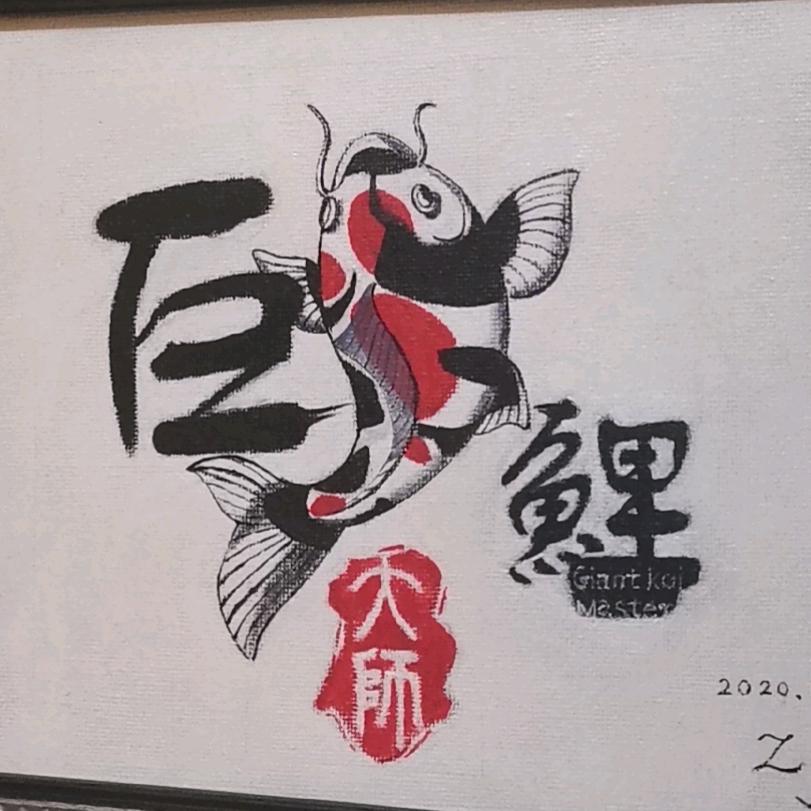 巨
鯉
Giant koi
Master
大師
2020.
Z